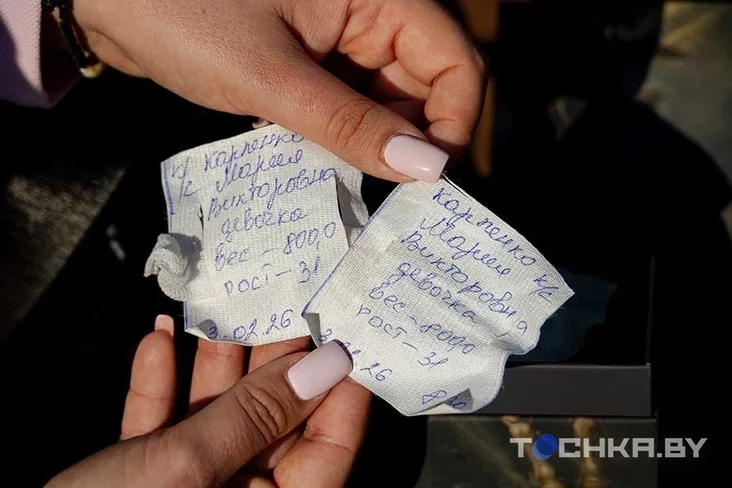 к/с Карпенко
Мария
Викторовна
девочка
вес - 800,0
рост - 31
3.02.26
Карпенко к/с
Мария
Викторовна
девочка
вес - 800,0
рост - 31
.26
TOCHKA.BY